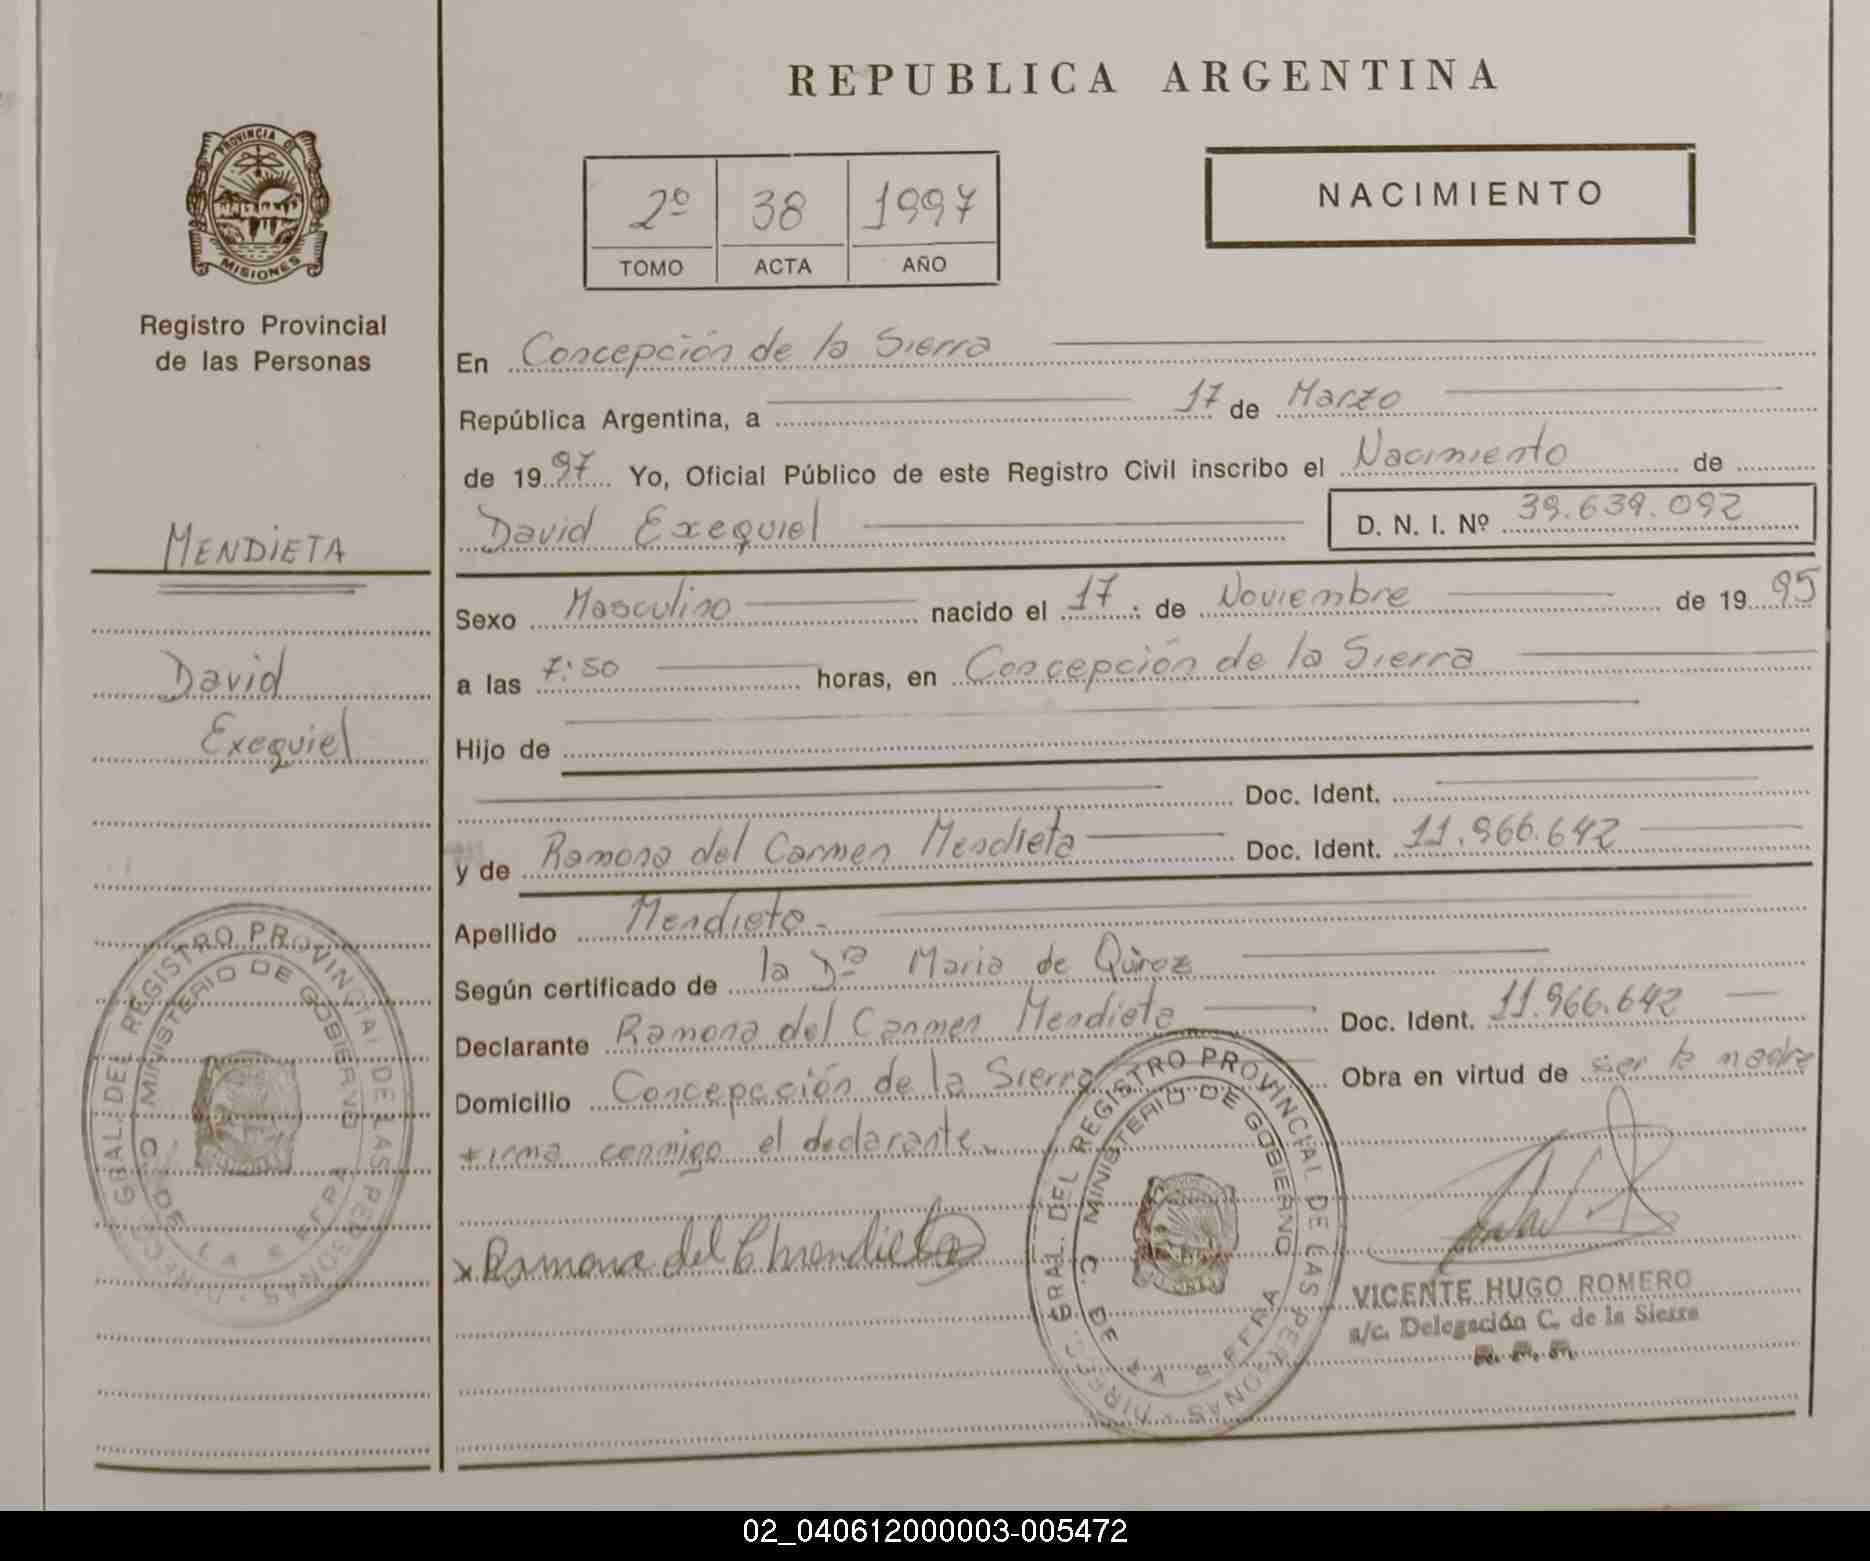 REPUBLICA ARGENTINA
PROVINCIA DE
MISIONES
Registro Provincial
de las Personas
2º 38 1997
TOMO ACTA AÑO
NACIMIENTO
En Concepción de la Sierra
República Argentina, a 17 de Marzo
de 1997 Yo, Oficial Público de este Registro Civil inscribo el Nacimiento de
David Exequiel D. N. I. Nº 39.639.092
MENDIETA
David
Exequiel
Sexo Masculino nacido el 17 de Noviembre de 1995
a las 7:50 horas, en Concepción de la Sierra
Hijo de
Doc. Ident.
y de Ramona del Carmen Mendieta Doc. Ident. 11.966.642
Apellido Mendieta.
Según certificado de la Dª Maria de Qùroz
Declarante Ramona del Carmen Mendieta Doc. Ident. 11.966.642
Domicilio Concepcción de la Sierra Obra en virtud de ser la madre
firma conmigo el declarante.
x Ramona del C Mendieta
DIREC. GRAL. DEL REGISTRO PROVINCIAL DE LAS PERSONAS
MINISTERIO DE GOBIERNO
C. DE LA SIERRA
DIREC. GRAL. DEL REGISTRO PROVINCIAL DE LAS PERSONAS
MINISTERIO DE GOBIERNO
C. DE LA SIERRA
VICENTE HUGO ROMERO
a/c. Delegación C. de la Sierra
02_040612000003-005472